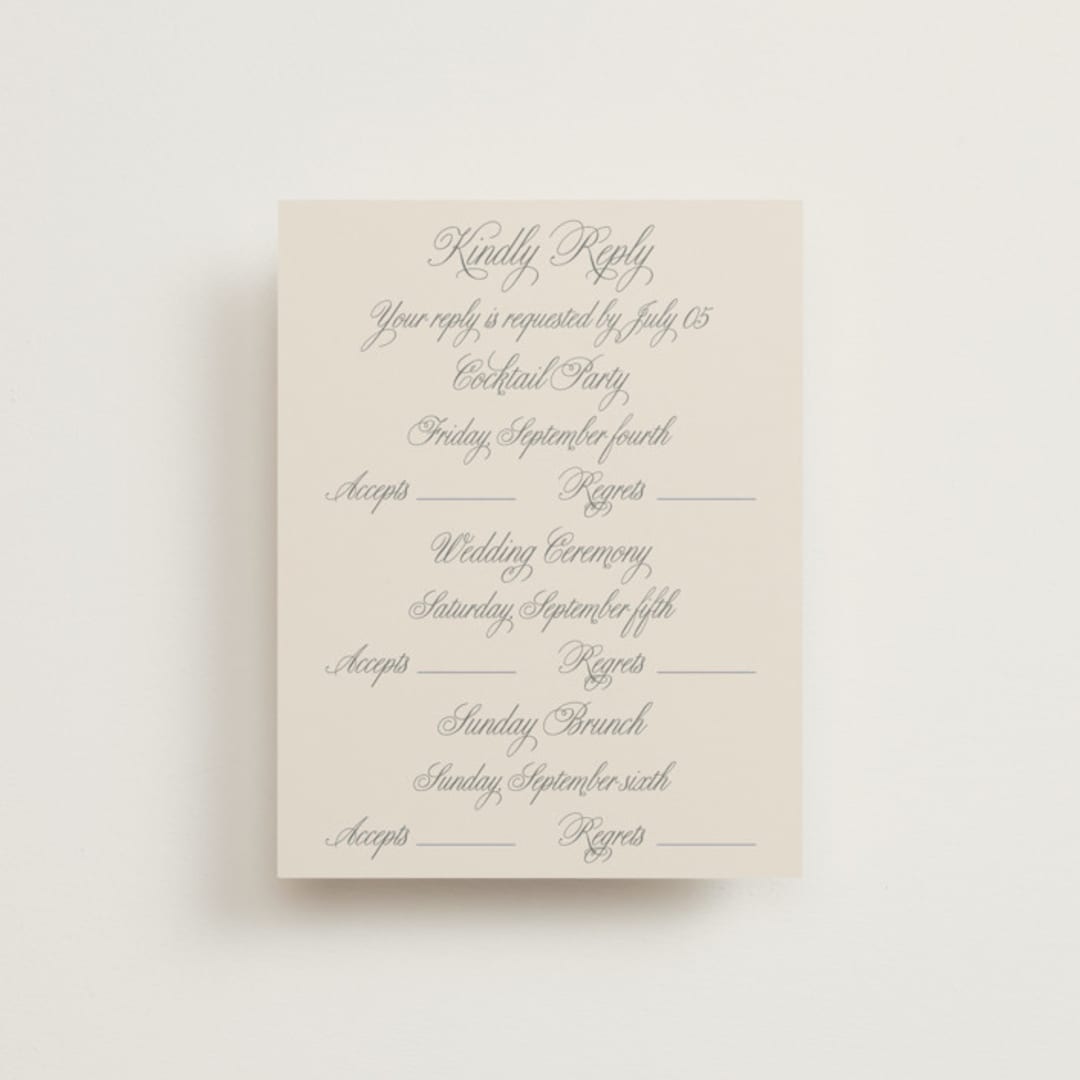 Kindly Reply
Your reply is requested by July 05
Cocktail Party
Friday, September fourth
Accepts __________ Regrets __________
Wedding Ceremony
Saturday, September fifth
Accepts __________ Regrets __________
Sunday Brunch
Sunday, September sixth
Accepts __________ Regrets __________